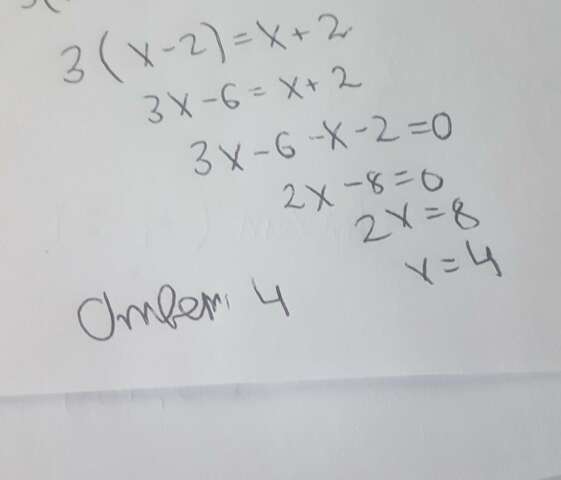 3(x-2)=x+2
3x-6=x+2
3x-6-x-2=0
2x-8=0
2x=8
x=4
Ответ: 4